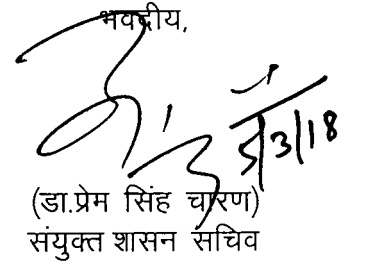 भवदीय,
(डा.प्रेम सिंह चारण)
संयुक्त शासन सचिव